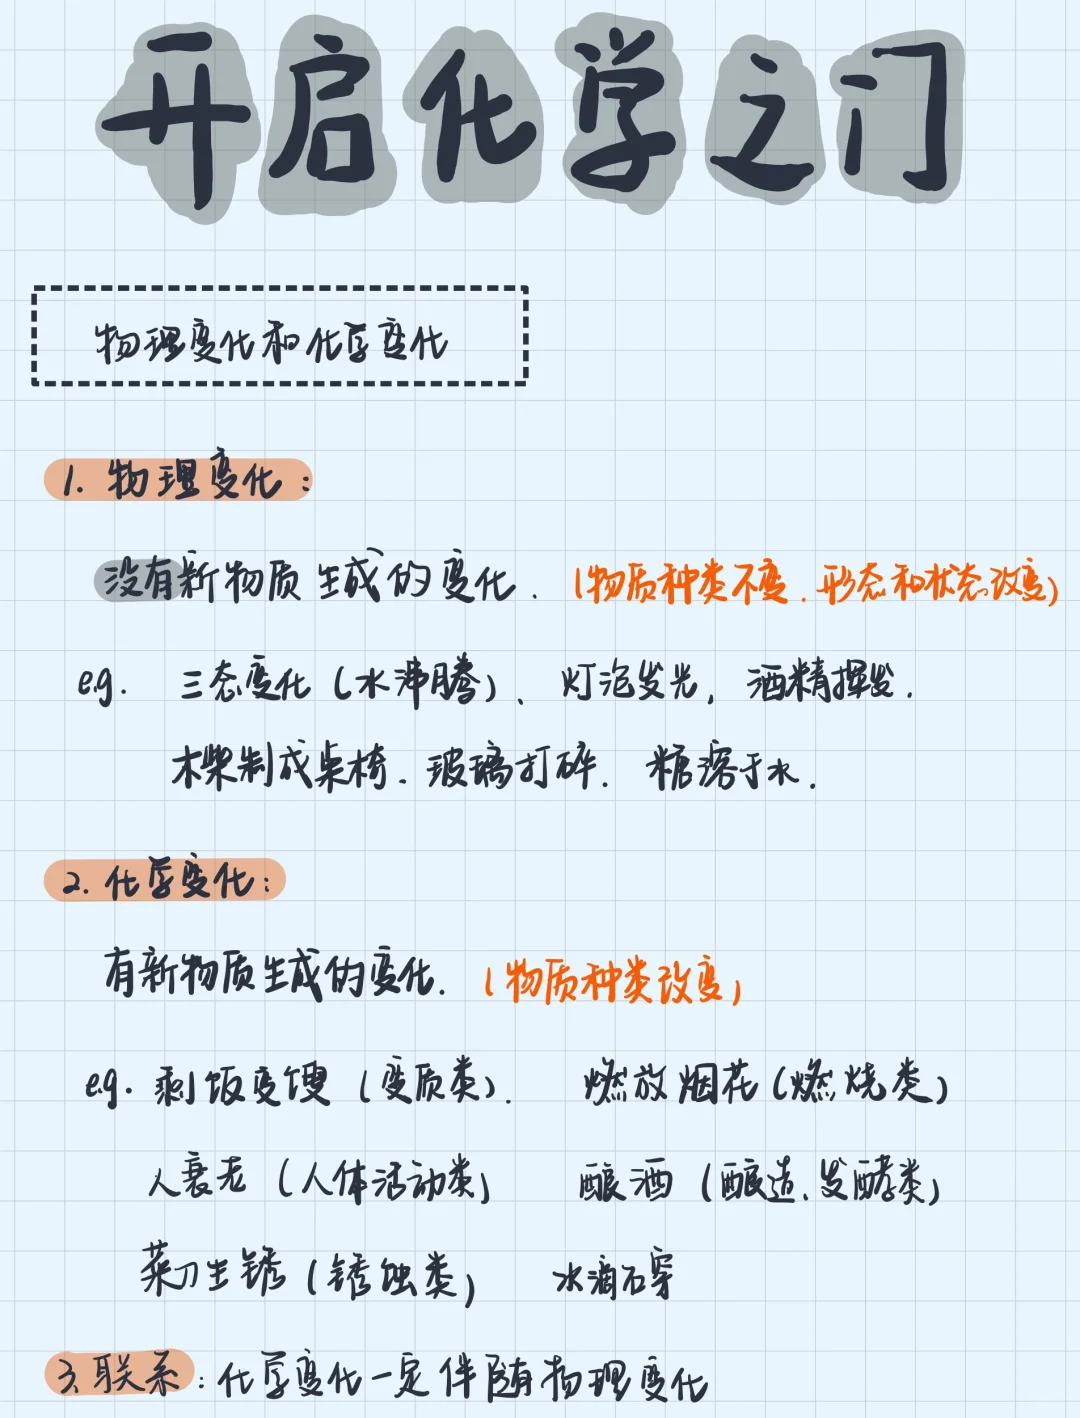 开启化学之门
物理变化和化学变化
1. 物理变化：
没有新物质生成的变化. (物质种类不变. 形态和状态改变)
e.g. 三态变化(水沸腾)、灯泡发光, 酒精挥发.
木柴制成桌椅. 玻璃打碎. 糖溶于水.
2. 化学变化：
有新物质生成的变化. (物质种类改变)
e.g. 剩饭变馊(变质类). 燃放烟花(燃烧类)
人衰老(人体活动类) 酿酒(酿造、发酵类)
菜刀生锈(锈蚀类) 水滴石穿
3. 联系：化学变化一定伴随物理变化